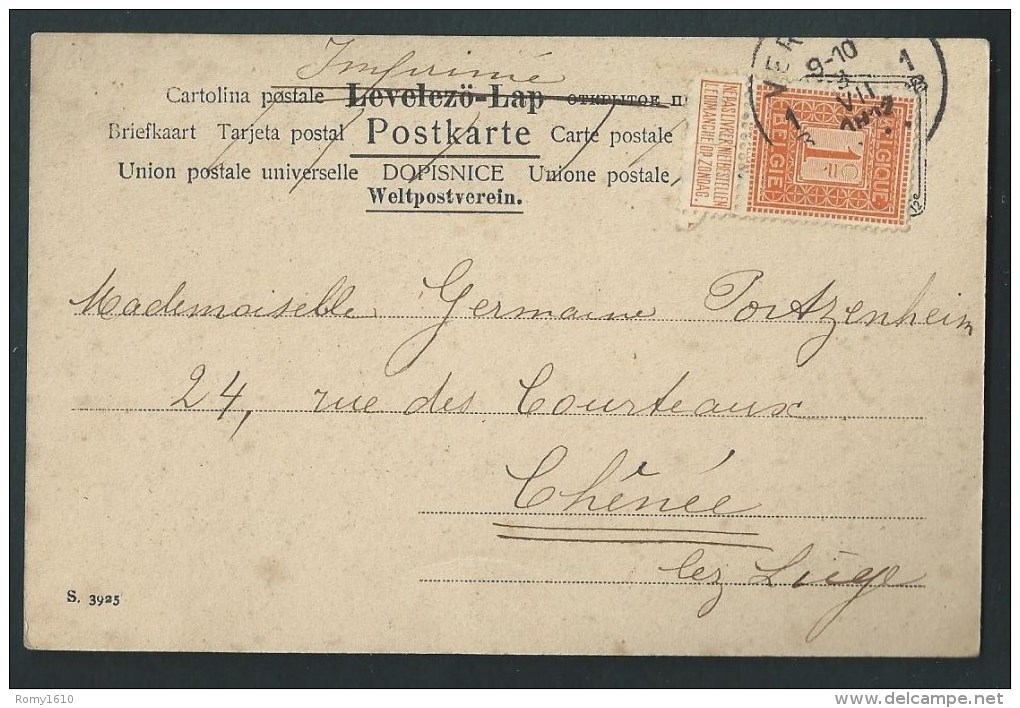 Imprimé
Cartolina postale Levelezö-Lap ОТКРЫТОЕ П
Briefkaart Tarjeta postal Postkarte Carte postale
Union postale universelle DOPISNICE Unione postale
Weltpostverein.
NE PAS LIVRER LE DIMANCHE
NIET BESTELLEN OP ZONDAG
BELGIQUE
1c
BELGIË
VER
9-10
VII
1
1
Mademoiselle Germaine Portzenheim
24, rue des Courteaux
Chênée
lez Liége
S. 3925
Romy1610
delcampe.net